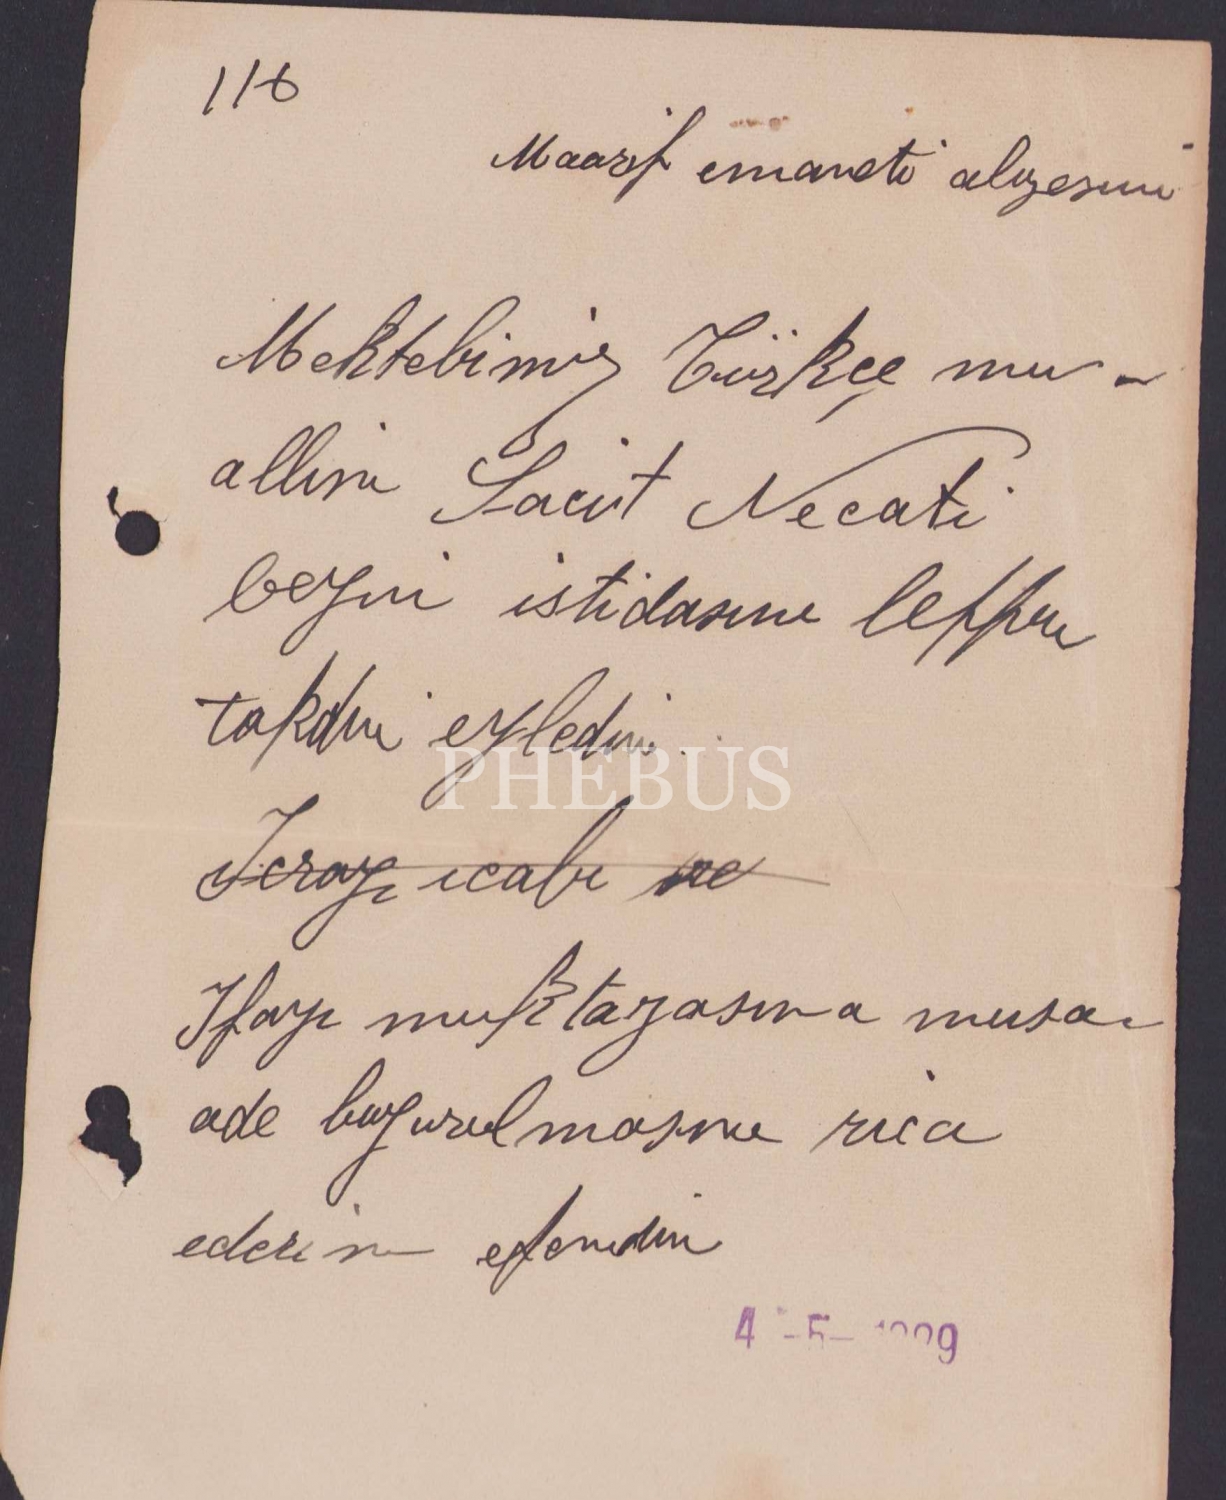 116
Maarif emaneti aliyesine
Mektebimiz Türkçe mu-
allimi Sacit Necati
beyin istidasını leffen
takdim eyledim.
İcrayi icabı ve
Ifayi muktazasına musa-
ade buyurulmasını rica
ederim efendim
4 -5- 1929
PHEBUS